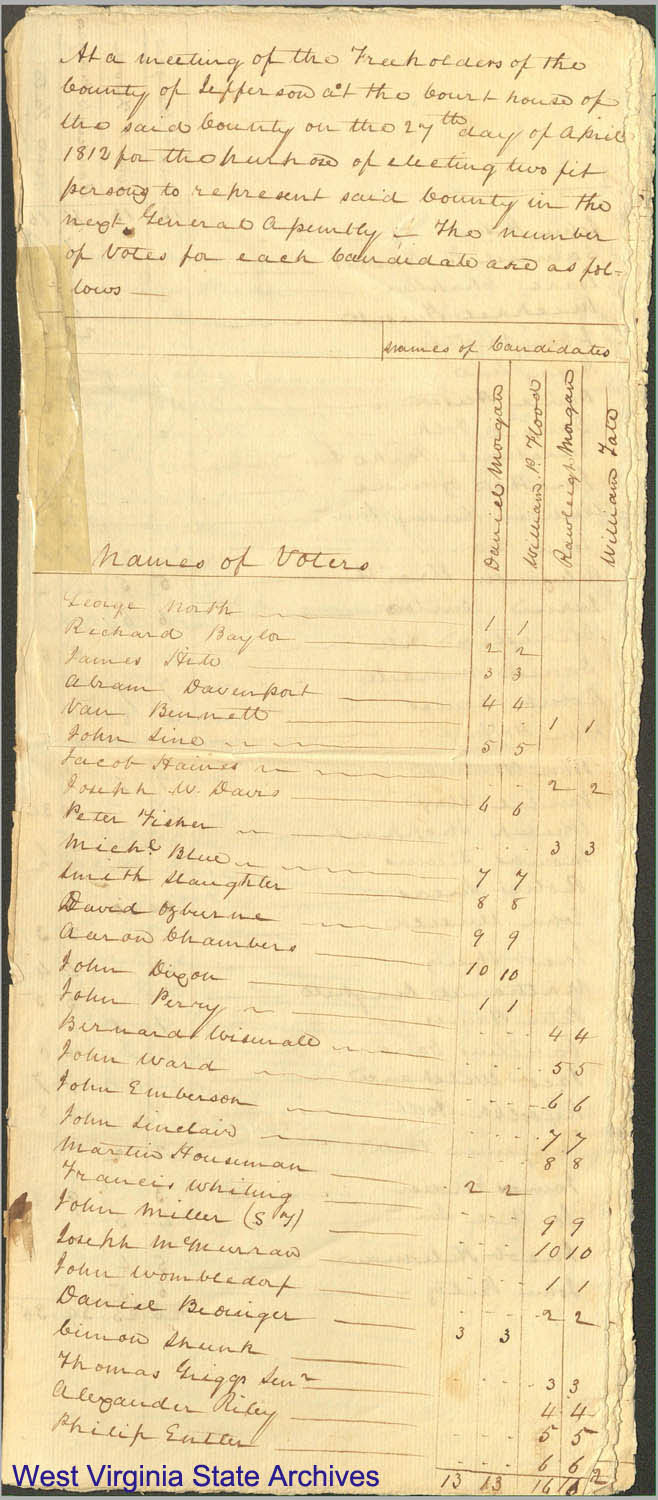 At a meeting of the Freeholders of the
County of Jefferson at the Court house of
the said County on the 27th day of April
1812 for the purpose of electing two fit
persons to represent said County in the
next General Assembly – The number
of Votes for each Candidate are as fol-
lows —
Names of Candidates
Daniel Morgan
William P. Flood
Rawleigh Morgan
William Tate
Names of Voters
George North 1 1
Richard Baylor 2 2
James Hite 3 3
Abram Davenport 4 4
Van Bennett 1 1
John Line 5 5
Jacob Haines 2 2
Joseph W. Davis 6 6
Peter Fisher 3 3
Michl. Blue 7 7
Smith Slaughter 8 8
David Ozburne 9 9
Aaron Chambers 10 10
John Dixon 1 1
John Perry 4 4
Bernard 5 5
John Ward 6 6
John Emberson 7 7
John Sinclair 8 8
Martin Houseman 2 2
Francis Whiting 9 9
John Miller (S 10 10
Joseph McMurran 1 1
John 2 2
Daniel Bedinger 3 3
Cimon Shunk 3 3
Thomas Griggs Senr 4 4
Alexander Riley 5 5
Philip Entler 6 6
13 13 16 16
West Virginia State Archives